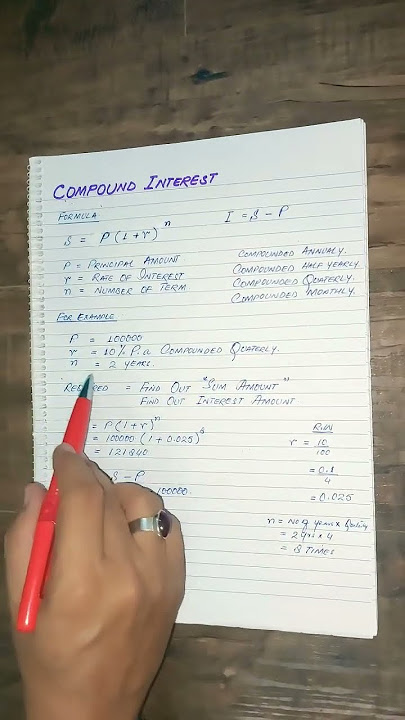 COMPOUND INTEREST
FORMULA
I = S - P
S = P (1+r)^n
P = PRINCIPAL AMOUNT
r = RATE OF INTEREST
n = NUMBER OF TERM
COMPOUNDED ANNUALY.
COMPOUNDED HALF YEARLY.
COMPOUNDED QUATERLY.
COMPOUNDED MONTHLY.
FOR EXAMPLE
P = 100000
r = 10% P.a COMPOUNDED QUATERLY.
n = 2 YEARS.
= FIND OUT "SUM AMOUNT"
FIND OUT INTEREST AMOUNT
= P(1+r)^n
= 100000 (1+0.025)^8
= 121840
S - P
100000.
R/W
r = 10/100
= 0.1/4
= 0.025
n = No of years x
= 2 yrs x 4
= 8 TIMES